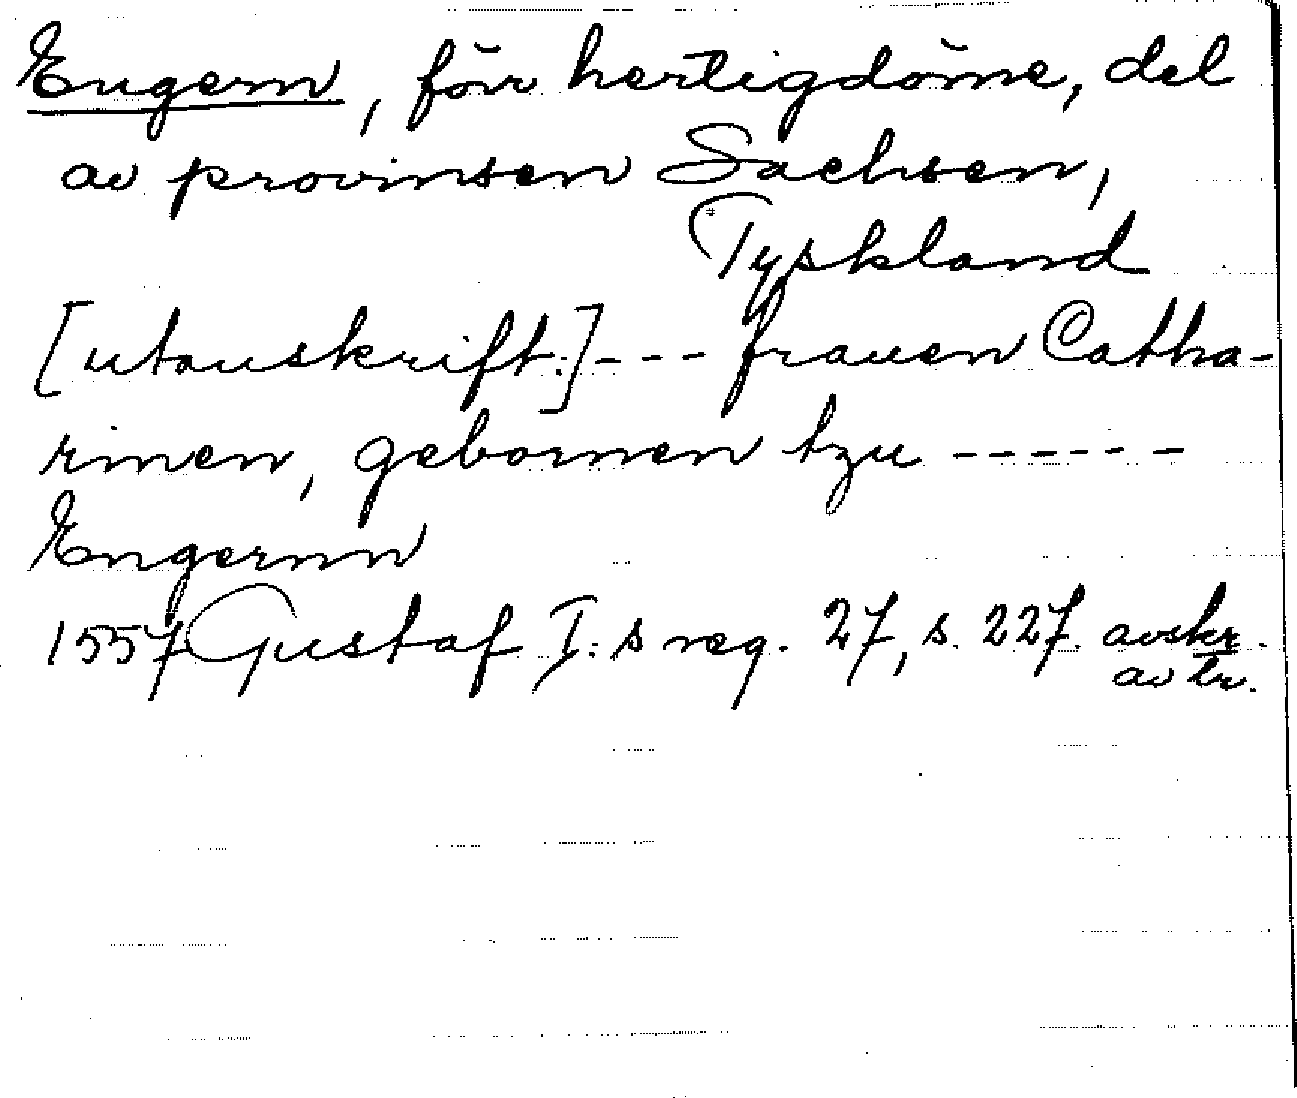 Engern, förr hertigdöme, del
av provinsen Sachsen,
Tyskland
[utanskrift:] - - - frauen Catha-
rinen, gebornen tzu - - - - - -
Engernn
1557 Gustaf I:s reg. 27, s. 227. avskr.
av tr.